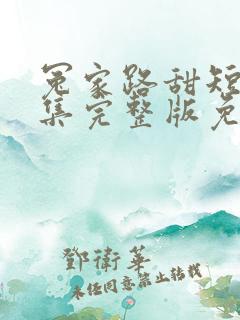 冤家路甜短
集完整版免
鄧衛華
未经同意禁止转载